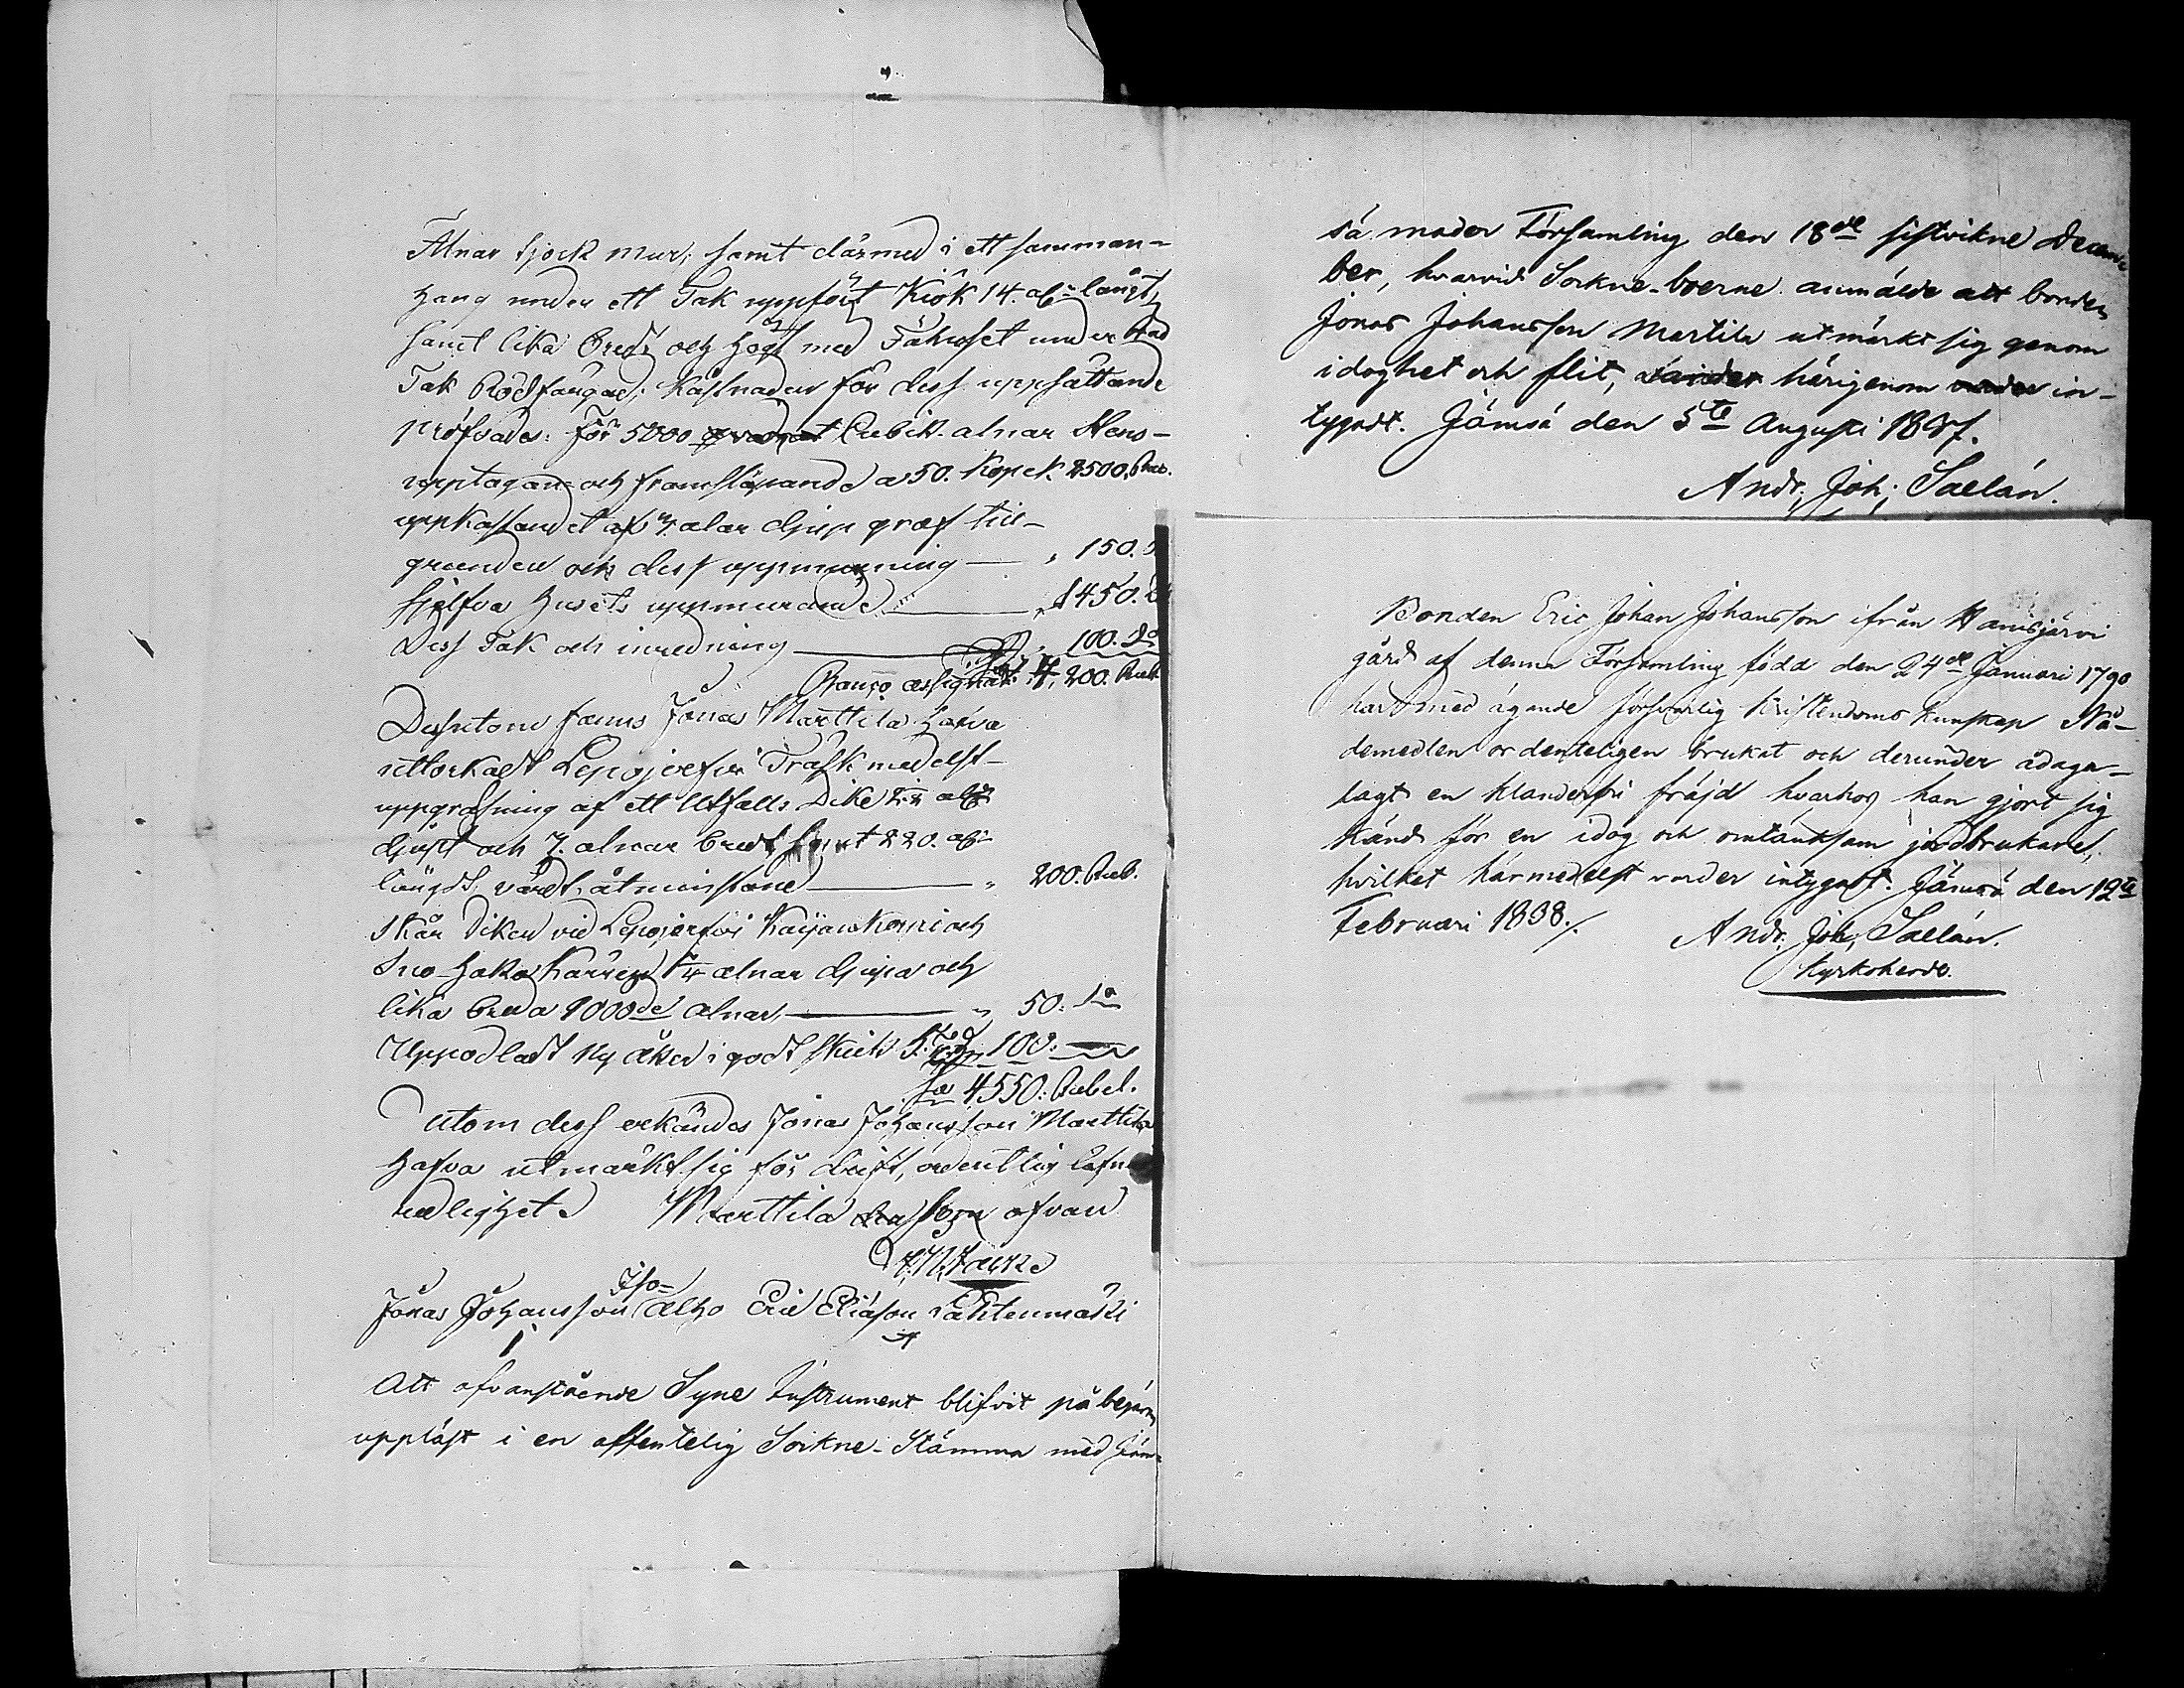 Alnar tjock mur, samt därmed i ett samman-
hang under ett Tak uppfört Kiök 14. aln: långt,
samt lika bredt och högt med Fähuset under
Tak Rödfärgad; Kåstnaden för dess uppsättande
pröfvades: för 5000 Cubik. alnar Stens-
upptagan- och framsläpande a 50. Kopek. 2500. Rub.
uppkastandet af alnar djup graf till-
grunden och dess uppmurning — " 150.
Sjelfva husets uppmurande — " 1450.
Dess Tak och inredning — " 100. do
Banco assignat: 4,200. Rub
Dessutom fanns Jonas Marttila hafva
uttorkadt Lepojerfvi Träsk medelst-
uppgräfning af ett Utfalls Dike aln:
djupt och 7. alnar bredt samt 220. aln:
längdt, värdt, åtminstone — " 200. Rub.
Skär Diken vid Lepojerfvi och
alnar djupa och
lika breda 1000de alnar, — " 50: do
Uppodladt Ny åker i godt skick 100:
Sa 4550: Rubel.
Utom dess erkändes Jonas Johansson Marttila
hafva utmärkt sig för drift, ordentlig
redlighet. Marttila som ofvan

Iso-
Jonas Johansson Alho Eric Eliason Lahtenmäki
Att ofvanstående Syne Instrument blifvit på begäran
uppläst i en offentelig Sockne-Stämma med Jäm-
sä moder Församling den 18de sistvikne Decem-
ber, hvarvid Sockne-boerne anmälde att bonden
Jonas Johansson Martila utmärkt sig genom
idoghet och flit, härigenom in-
tygadt. Jämsä den 5te Augusti 1837.
Andr. Joh; Saelán.
Bonden Eric Johan Johansson ifrån Hanisjärvi
gård af denna Församling född den 24de Januari 1790
har med ägande försvarlig Kristendoms kunskap Nå-
demedlen ordenteligen brukat och derunder ådaga-
lagt en klanderfri fräjd hvarhos han gjort sig
känd för en idog och omtänksam jordbrukare;
hvilket härmedelst varder intygadt. Jämsä den 12te
Februari 1838./.
Andr. Joh; Saelán.
Kyrkoherde.